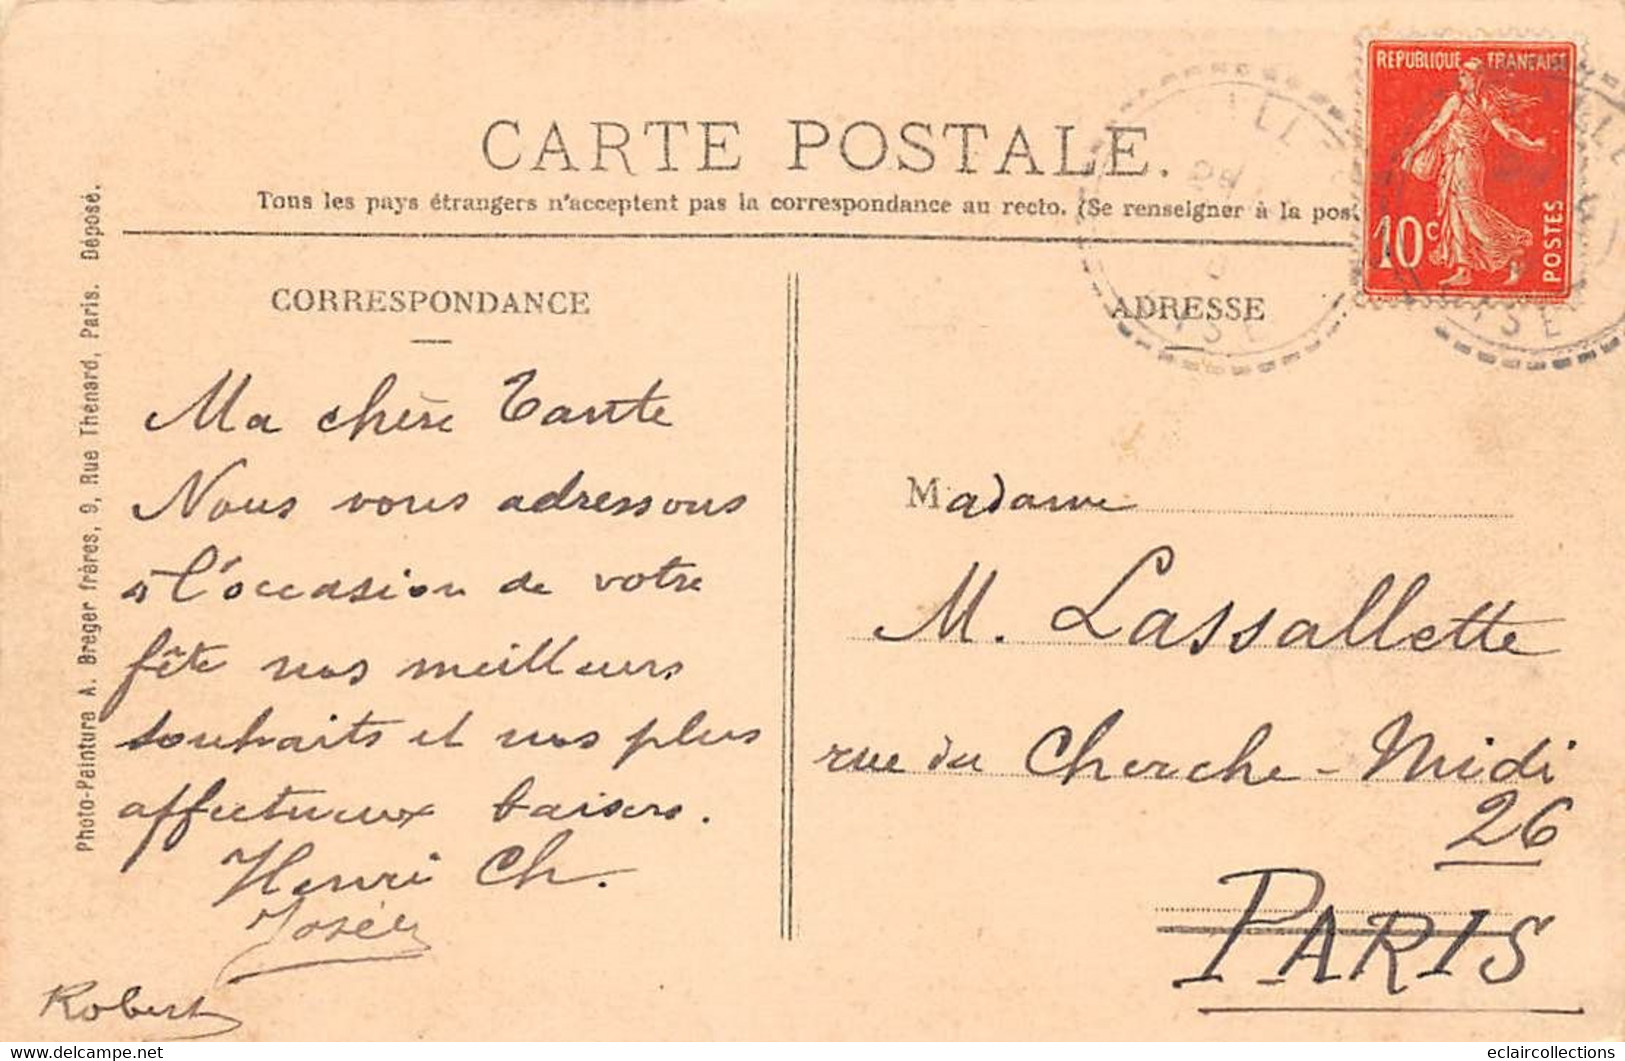 CARTE POSTALE.
Tous les pays étrangers n'acceptent pas la correspondance au recto. (Se renseigner à la pos
REPUBLIQUE FRANÇAISE
10c
POSTES
CORRESPONDANCE
Ma chère Tante
Nous vous adressons
à l'occasion de votre
fête nos meilleurs
souhaits et nos plus
affectueux baisers.
Henri Ch.
Josée
Robert
ADRESSE
Madame
M. Lassallette
rue du Cherche-Midi
26
PARIS
Photo-Peinture A. Breger frères, 9, Rue Thénard, Paris. Déposé.
eclaircollections